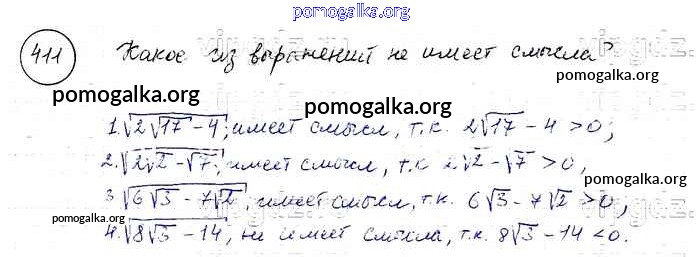 pomogalka.org
411 Какое из выражений не имеет смысла?
pomogalka.org
pomogalka.org
pomogalka.org
1. √(2√17 - 4); имеет смысл, т.к. 2√17 - 4 > 0;
2. √(2√2 - √7); имеет смысл, т.к 2√2 - √7 > 0;
pomogalka.org
3 √(6√3 - 7√2); имеет смысл, т.к. 6√3 - 7√2 > 0;
pomogalka.org
4. √(8√3 - 14); не имеет смысла, т.к. 8√3 - 14 < 0.
pomogalka.org